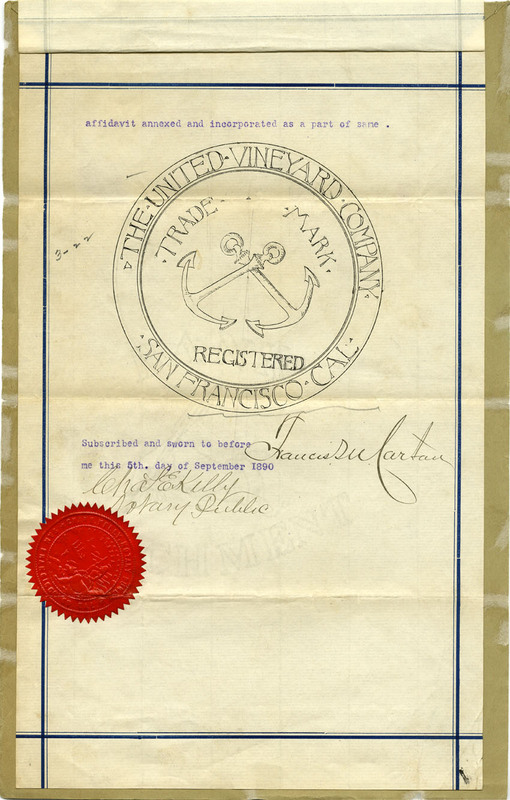 affidavit annexed and incorporated as a part of same .
THE·UNITED·VINEYARD·COMPANY
·TRADE· ·MARK·
3-22
REGISTERED
·SAN FRANCISCO·CAL·
Subscribed and sworn to before
me this 5th. day of September 1890
Francis
Kelly
Notary Public